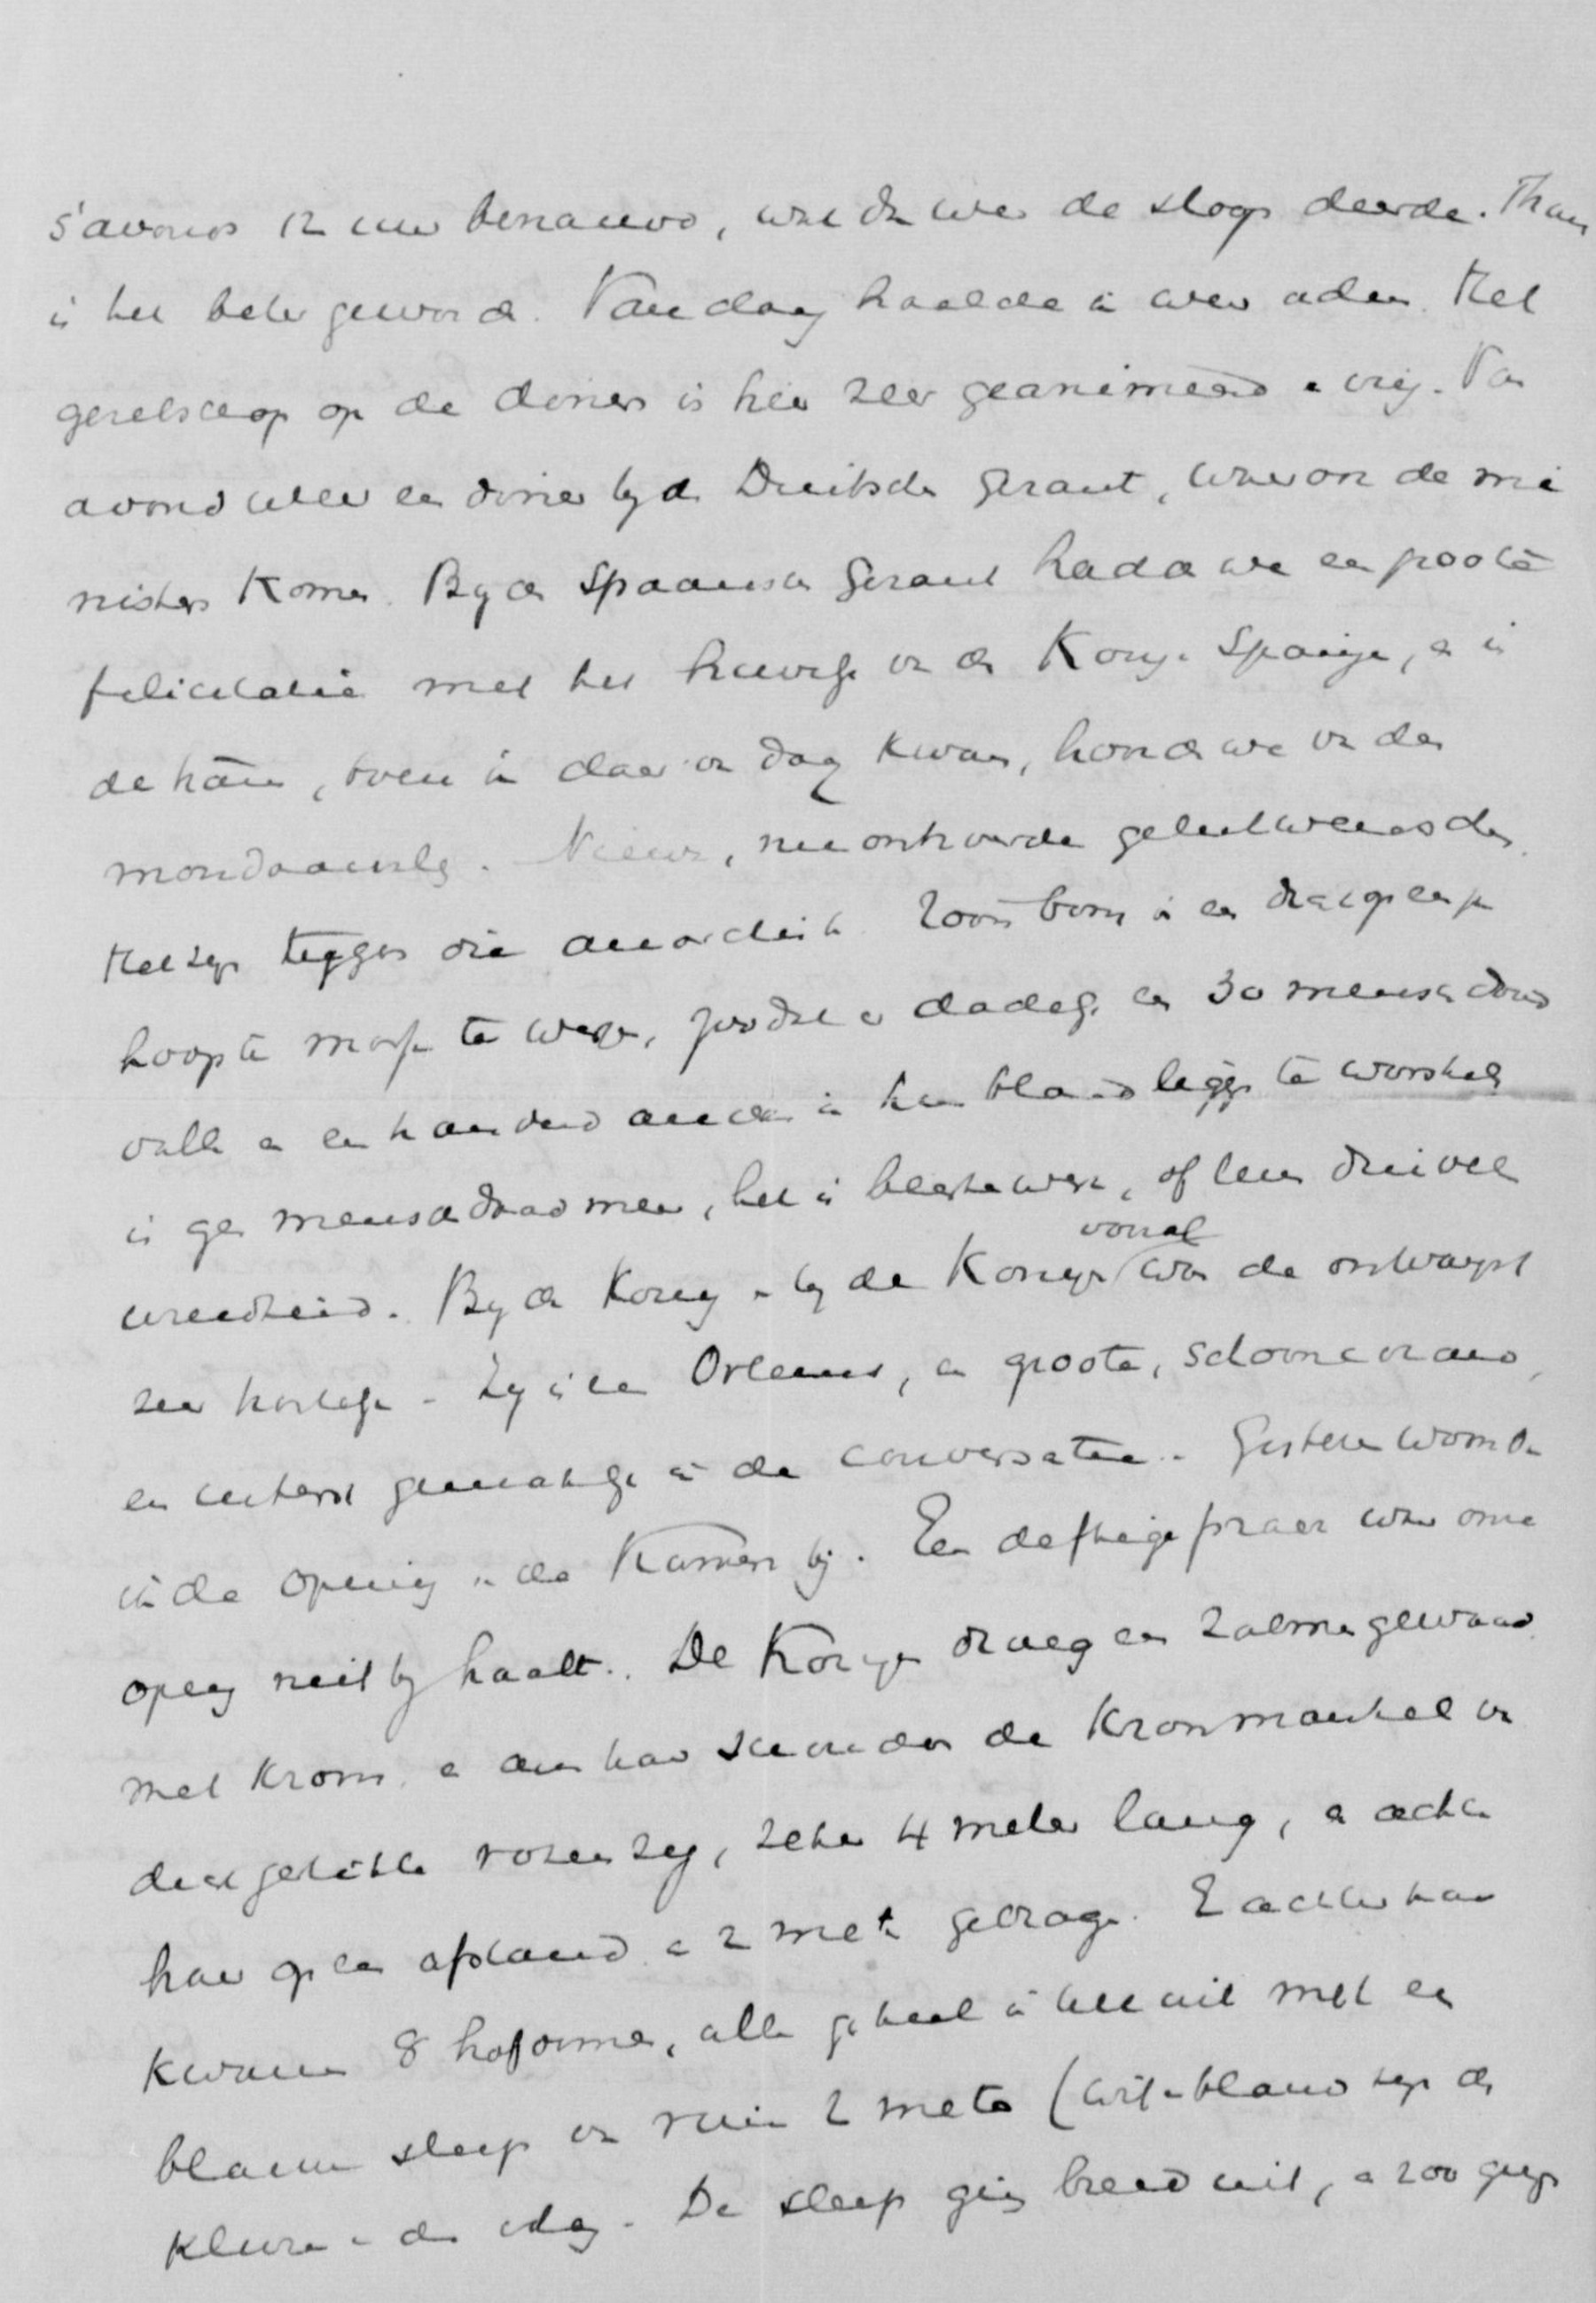 s'avonds 12 uur benauwd, wat den weer de slaap deerde. Thans
is het beter geworden. Vandaag haalde ik weer adem. Het
gezelschap op de diners is hier zeer geanimeerd en vrij. Van
avond weer een diner bij den Duitschen gerant, waar ook de mi
nisters komen. Bij den Spaanschen gerant hadden we een groote
felicitatie met het huwelijk van den Koning v. Spanje, en in
de kamer, toen ik daar van dag kwam, hoorden we van den
moordaanslag. Nieuwe, nu ontroerde gelukwenschen.
Het zijn tijgers die anarchisten. Zoo'n bom in een dicht opeen ge
hoopte massa te werpen, zoodat er dadelijk een 30 menschen dood
vallen en een honderd anderen in hun bloed liggen te worstelen
is geen menschendaad meer, het is beestenwerk, of leer duivel
wreedheid. Bij den Koning en bij de Koningin vooral was de ontvangst
zeer hartelijk. Zij is een Orleans, een groote, schoone vrouw,
en uiterst gemakkelijk in de conversatie. Gisteren woonde
ik de opening v. de Kamers bij. Een deftige praal waar onze
opening niet bij haalt. De Koningin droeg een zalmen gewaad
met kroon, en aan haar schouders de Kroonmantel van
dicht gestikte rozen zij, zeker 4 meter lang, en achter
haar op een afstand v. 2 meter gedragen. En achter haar
kwamen 8 hofdames, allen geheel in het wit met een
blauwe sleep van ruim 2 meter (wit en blauw zijn de
kleuren v. de vlag. De sleep ging breed uit, en zoo ging